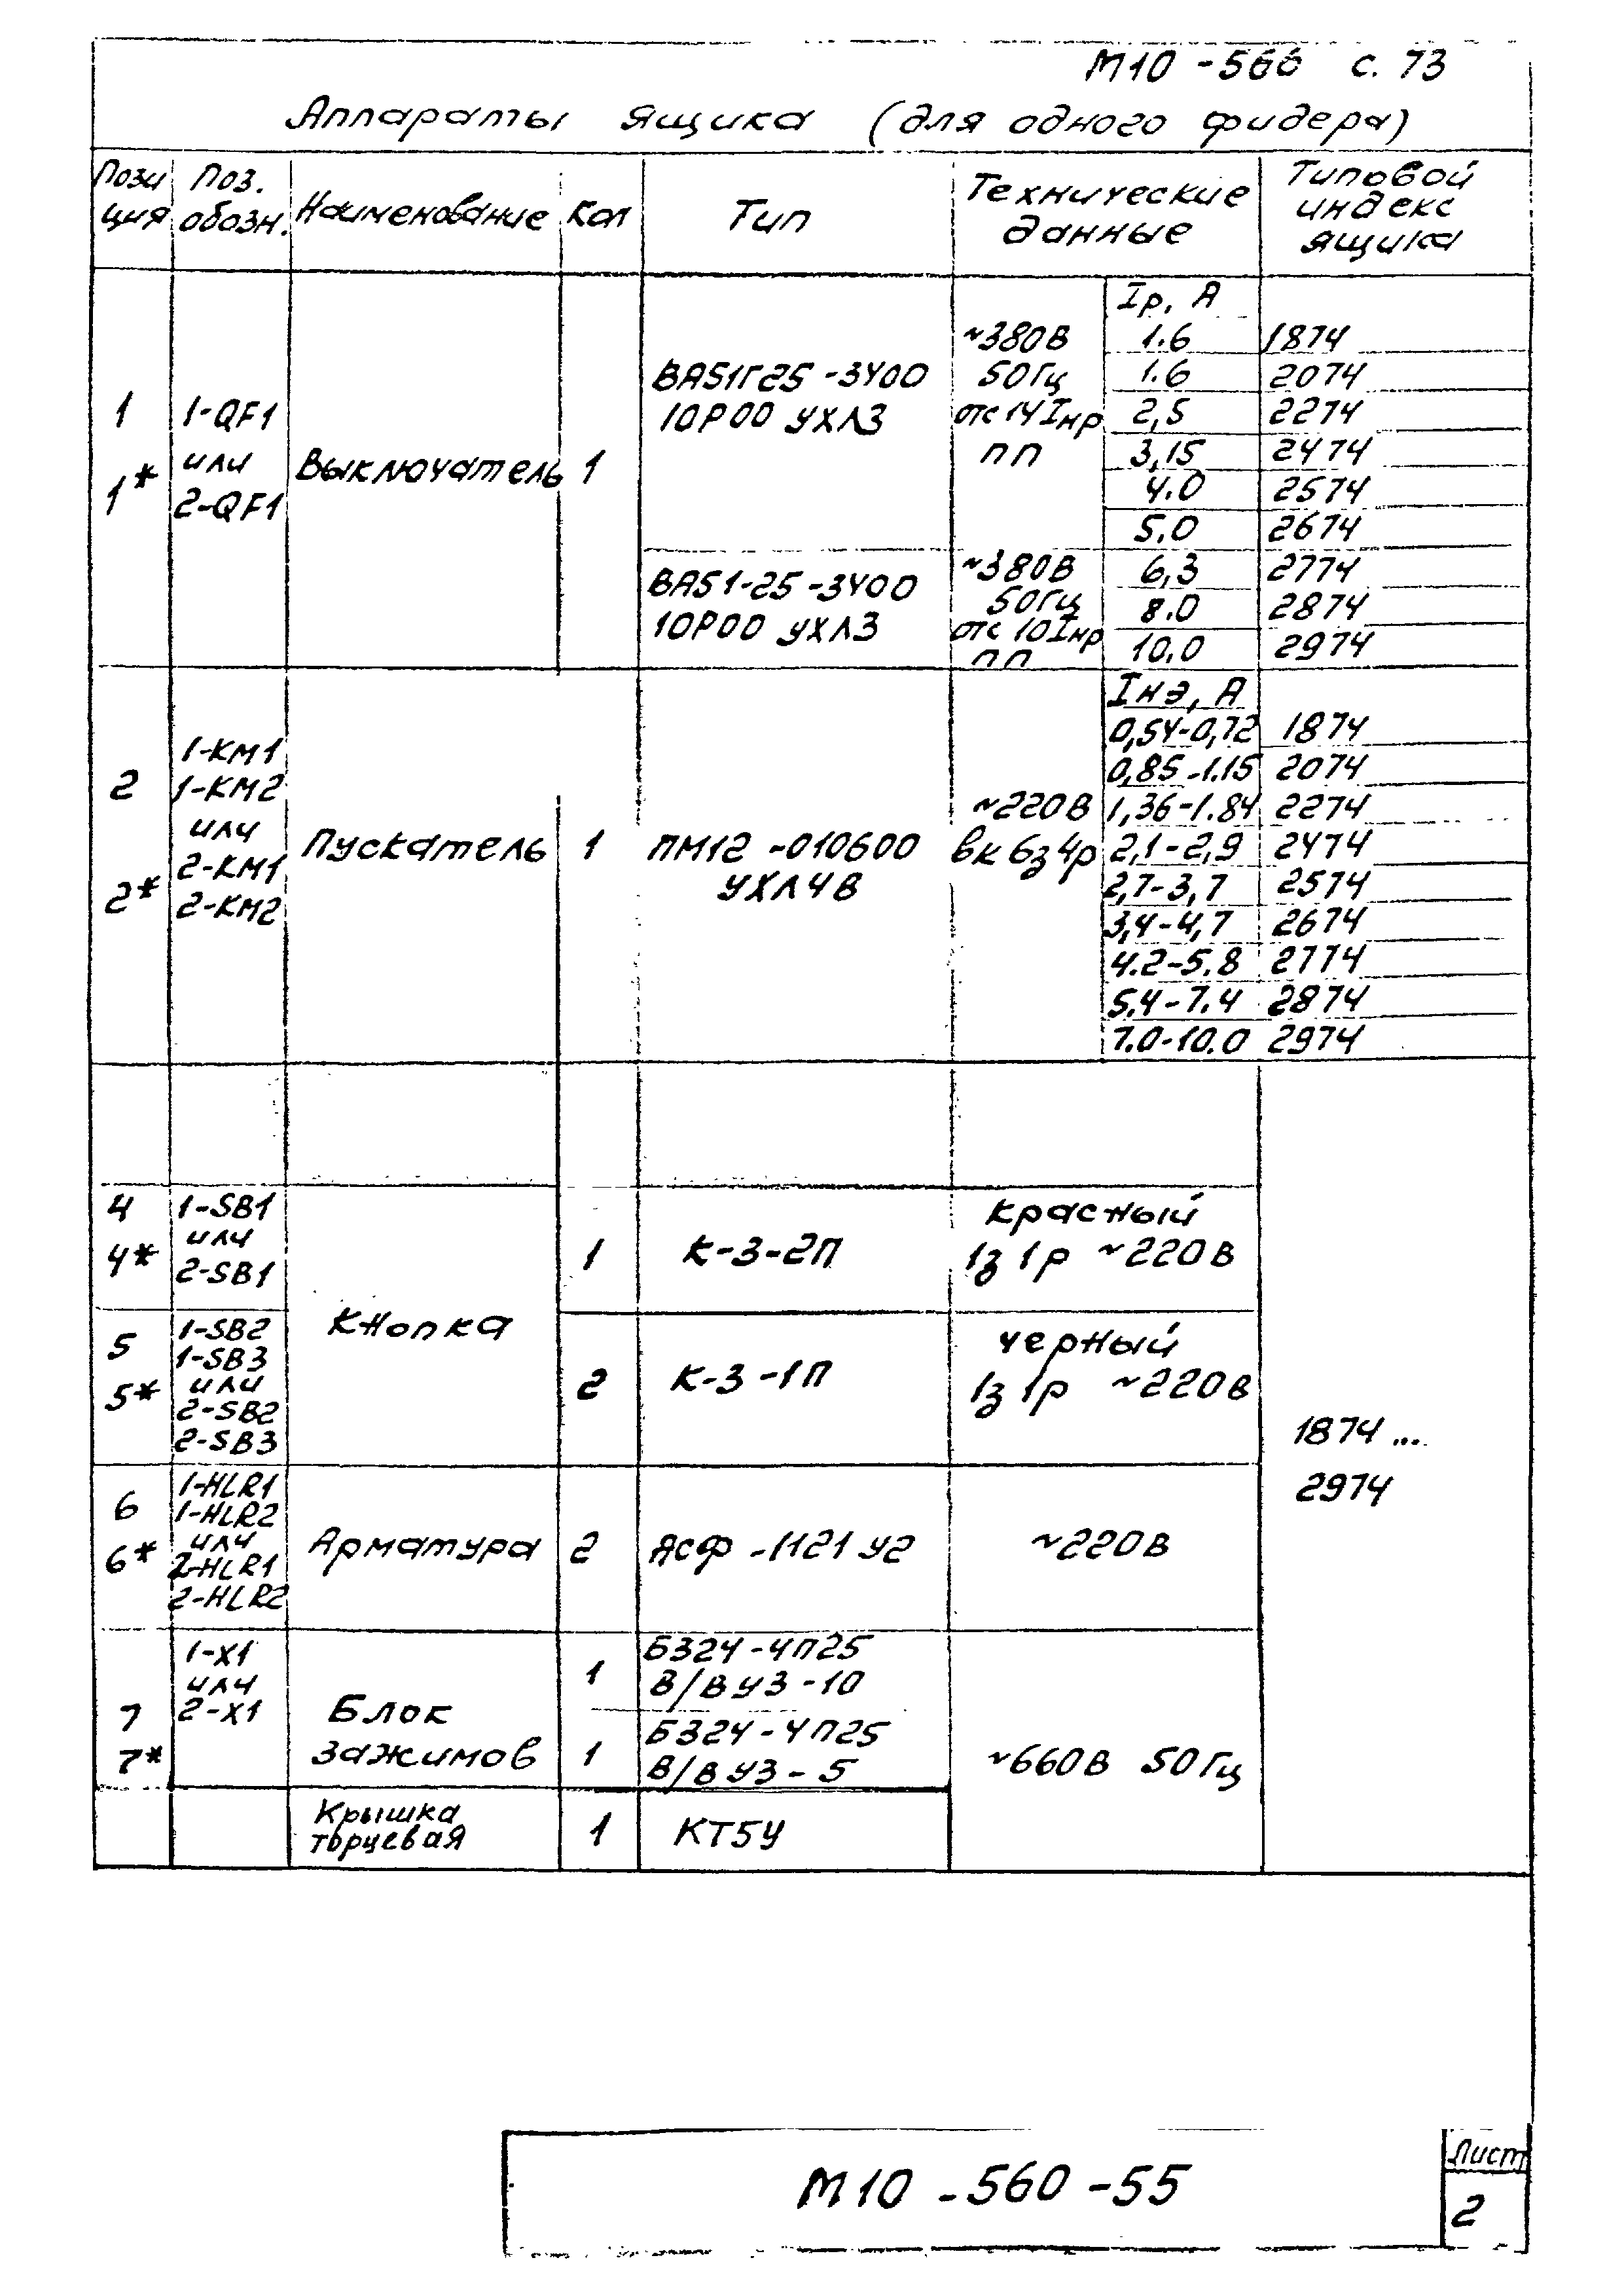 М10 -560 с. 73
Аппараты ящика (для одного фидера)
Пози
ция
Поз.
обозн.
Наименование
Кол
Тип
Технические
данные
Типовой
индекс
ящика
1
1*
1-QF1
или
2-QF1
Выключатель
1
ВА51Г25 -3400
10Р00 УХЛ3
~380В
50Гц
отс 14Iнр
пп
Iр, А
1.6 1874
1.6 2074
2,5 2274
3,15 2474
4.0 2574
5.0 2674
ВА51-25 -3400
10Р00 УХЛ3
~380В
50Гц
отс 10Iнр
пп
6,3 2774
8.0 2874
10,0 2974
2
2*
1-КМ1
1-КМ2
или
2-КМ1
2-КМ2
Пускатель
1
ПМ12 -010600
УХЛ4В
~220В
вк 6з 4р
Iнэ, А
0,54-0,72 1874
0,85-1.15 2074
1,36-1.84 2274
2,1-2,9 2474
2,7-3,7 2574
3,4-4,7 2674
4.2-5.8 2774
5.4-7.4 2874
7.0-10.0 2974
4
4*
1-SB1
или
2-SB1
Кнопка
1
К-3-2П
красный
1з 1р ~220В
5
5*
1-SB2
1-SB3
или
2-SB2
2-SB3
2
К-3-1П
черный
1з 1р ~220В
1874 ...
2974
6
6*
1-HLR1
1-HLR2
или
2-HLR1
2-HLR2
Арматура
2
АСФ -1121 У2
~220В
7
7*
1-Х1
или
2-Х1
Блок
зажимов
1
БЗ24-4П25
В/ВУ3-10
1
БЗ24-4П25
В/ВУ3-5
~660В 50Гц
Крышка
торцевая
1
КТ5У
М10 -560 -55
Лист
2